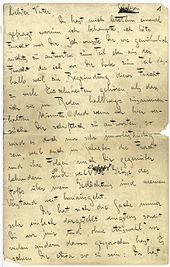 1
Liebster Vater
Du hast mich letzthin einmal
gefragt warum ich behaupte, ich hätte
Furcht vor Dir. Ich wusste Dir, wie gewöhnlich,
nichts zu antworten, zum Teil eben aus der
Furcht die ich vor Dir habe, zum Teil des-
halb weil zur Begründung dieser Furcht
zu viele Einzelheiten gehören, als dass
ich sie im Reden halbwegs zusammen-
halten könnte. Und wenn ich hier
versuche Dir schriftlich zu antworten, so
wird es doch nur sehr unvollständig
sein, weil auch im Schreiben die Furcht
und ihre Folgen mich Dir gegenüber
behindern und weil die Grösse des
Stoffs über mein Gedächtnis und meinen
Verstand weit hinausgeht.
Dir hat sich die Sache immer
sehr einfach dargestellt, wenigstens soweit
Du vor mir und, ohne Auswahl, vor
vielen andern davon gesprochen hast. Es
schien Dir etwa so zu sein: Du hast